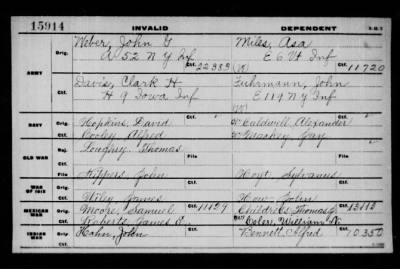 15914 INVALID DEPENDENT
ARMY
Orig. Weber, John G Miles, Asa
A 52 N Y Inf E 6 Vt Inf
Ctf. 22383 (W) Ctf. 11720
Orig. Davis, Clark H Fuhrmann, John
H 9 Iowa Inf E 119 N Y Inf
Ctf. (W) Ctf.
NAVY Orig. Hopkins, David Ctf. W Caldwell Alexander Ctf.
Ctf. Cooley Alfred W Meachey Jay
OLD WAR Rej. Loughry Thomas
File File
WAR OF 1812 Orig. John Ctf. Hoyt, Sylvanus Ctf.
Ctf. Wiley James How John
MEXICAN WAR Orig. Moore, Samuel Ctf. 11127 Childress Thomas J Ctf. 13113
Ctf. Roberts, James William N.
INDIAN WAR Orig. Hahn, John Ctf. Bennett Alfred Ctf. 10350